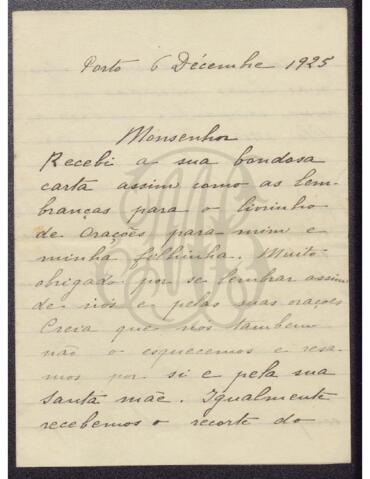 Porto 6 Décembre 1925
Monsenhor
Recebi a sua bondosa
carta assim como as lem-
branças para o livrinho
de orações para mim e
minha filhinha. Muito
obrigado por se lembrar assim
de nós e pelas suas orações
Creia que nós tambem
não o esquecemos e resa-
mos por si e pela sua
santa mãe. Igualmente
recebemos o recorte do